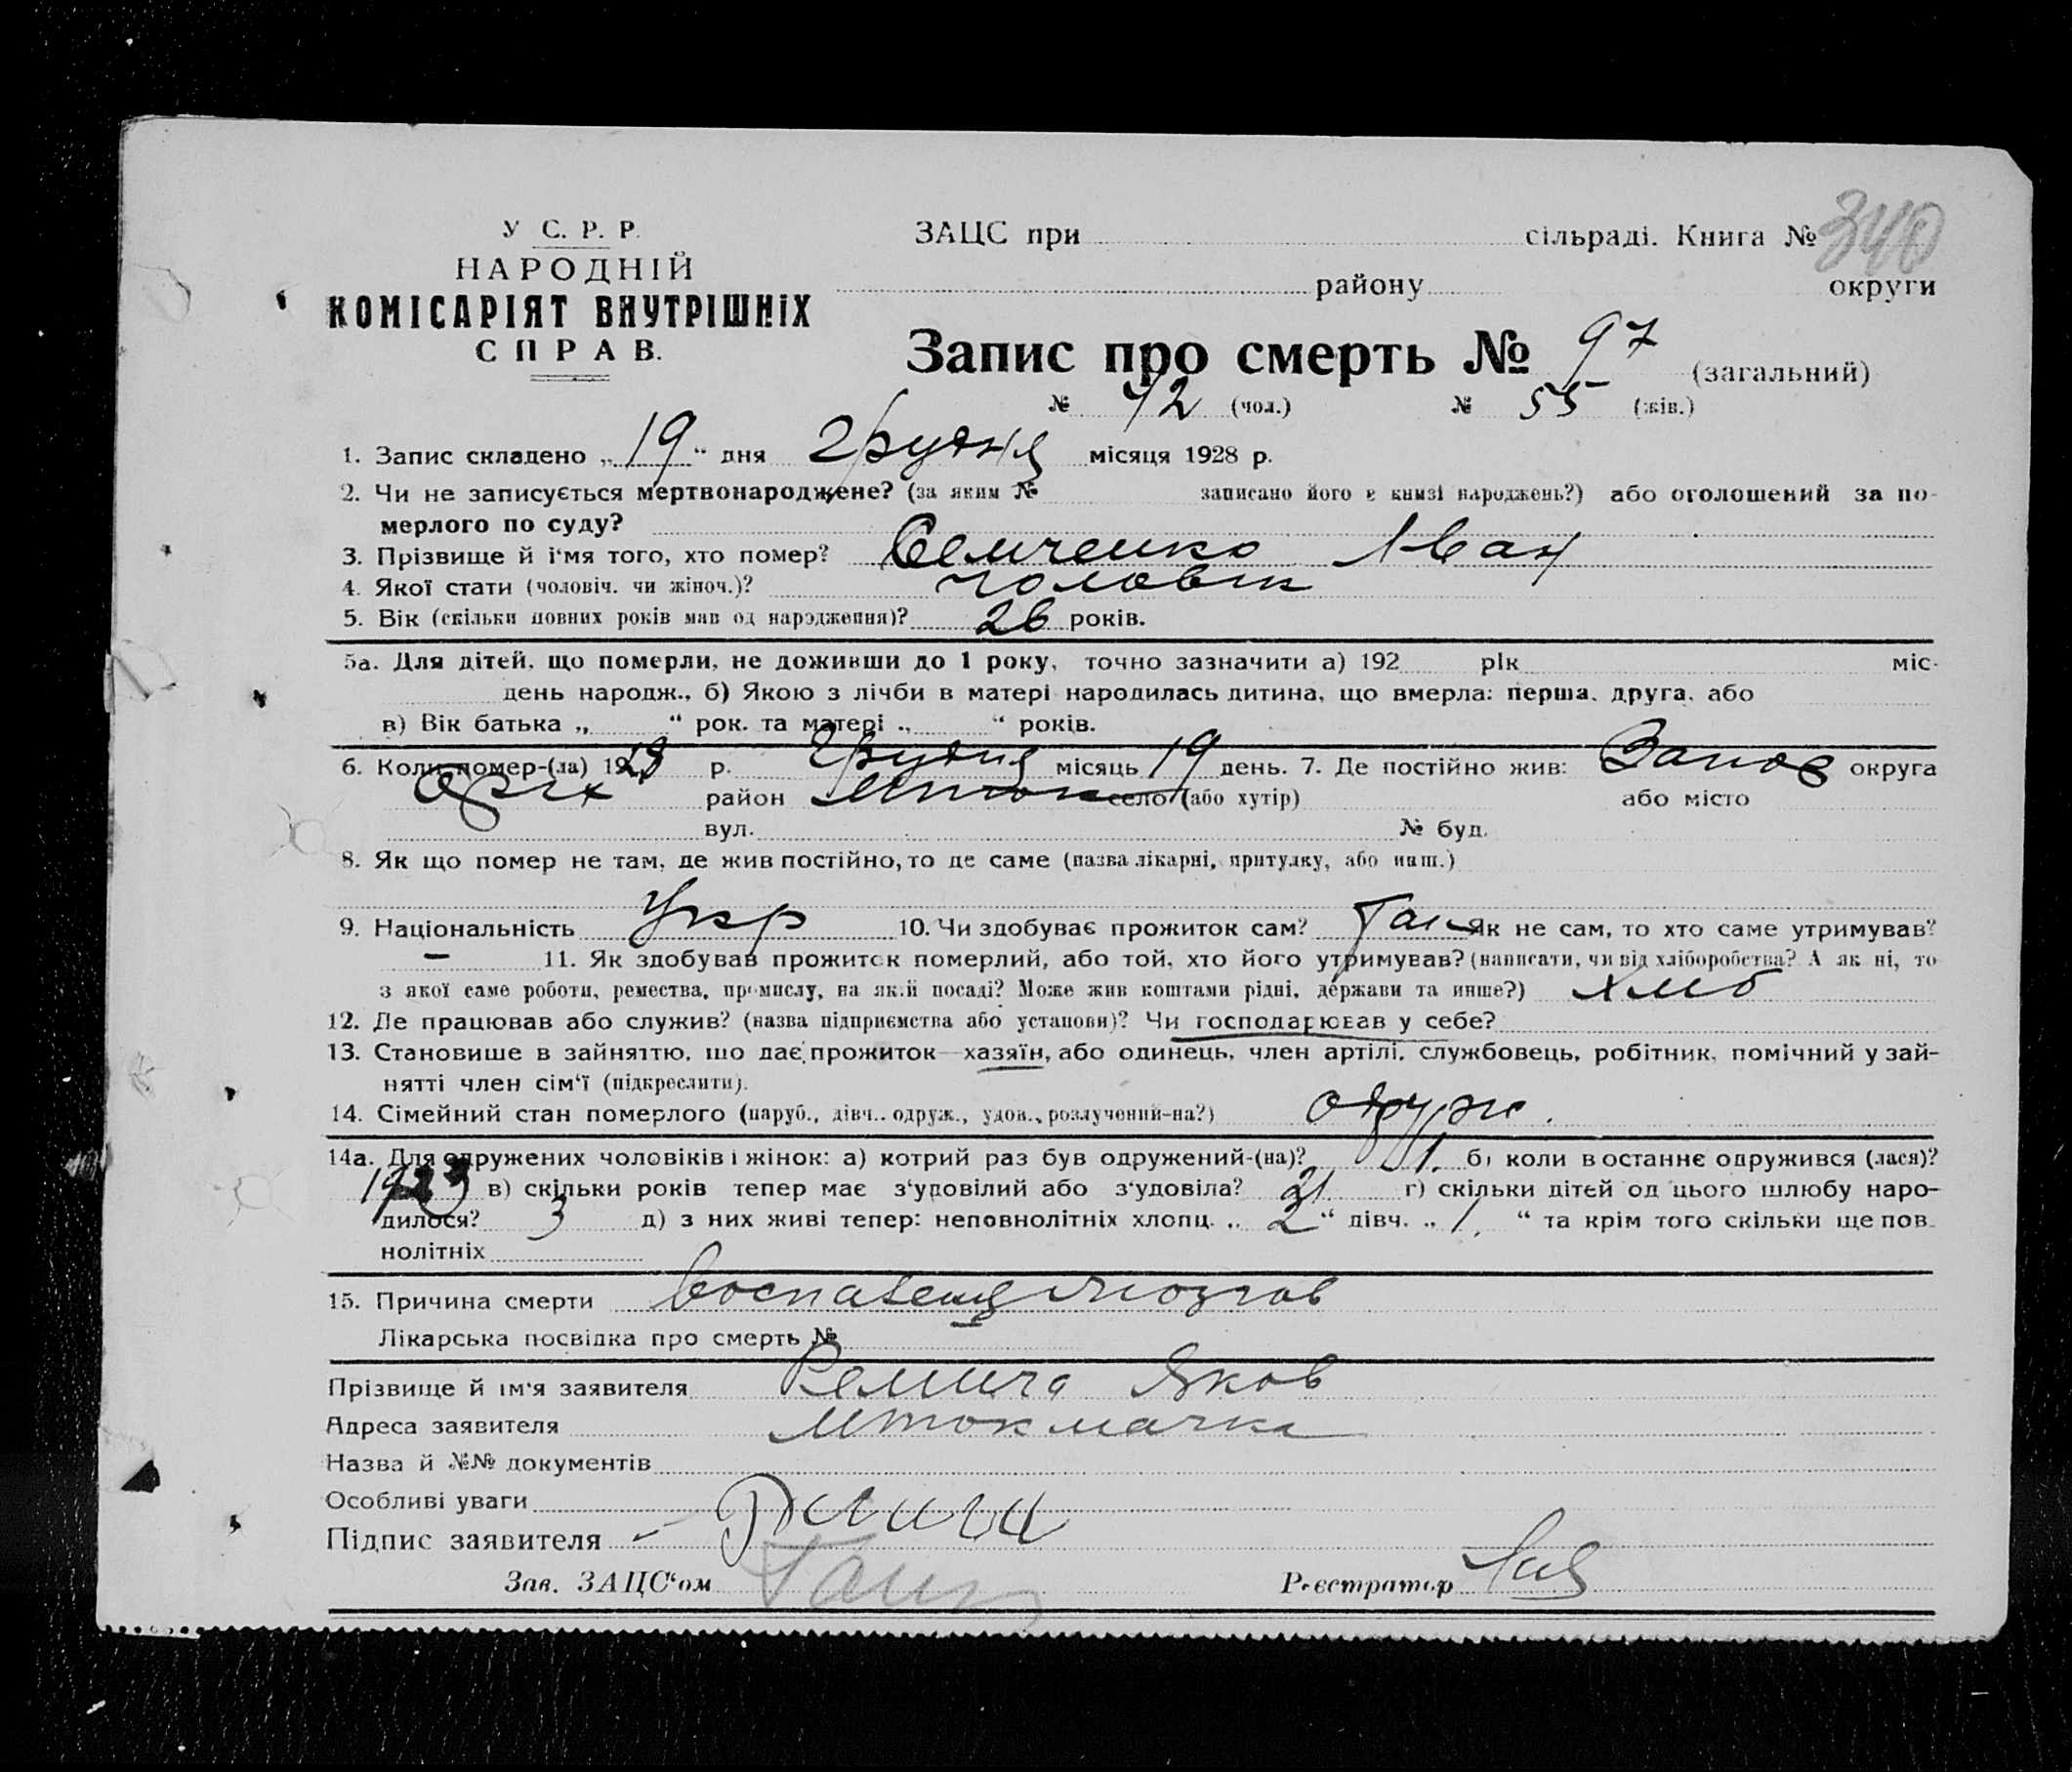 У С. Р. Р.
НАРОДНІЙ
КОМІСАРІЯТ ВНУТРІШНІХ
СПРАВ.
ЗАЦС при сільраді. Книга № 340
району округи
Запис про смерть № 97 (загальний)
№ 42 (чол.) № 55 (жін.)
1. Запис складено „19“ дня грудня місяця 1928 р.
2. Чи не записується мертвонароджене? (за яким № записано його в книзі народжень?) або оголошений за по-
мерлого по суду?
3. Прізвище й і'мя того, хто помер? Семченко Іван
4. Якої стати (чоловіч. чи жіноч.)? чоловік
5. Вік (скільки повних років мав од народження)? 26 років.
5а. Для дітей, що померли, не доживши до 1 року, точно зазначити а) 192 рік міс.
день народж., б) Якою з лічби в матері народилась дитина, що вмерла: перша, друга, або
в) Вік батька „ “ рок. та матері „ “ років.
6. Коли помер-(ла) 1928 р. грудня місяць 19 день. 7. Де постійно жив: Запор округа
Оріх район Мток село (або хутір) або місто
вул. № буд.
8. Як що помер не там, де жив постійно, то де саме (назва лікарні, притулку, або инш.)
9. Національність Укр 10. Чи здобуває прожиток сам? Так Як не сам, то хто саме утримував?
— 11. Як здобував прожиток померлий, або той, хто його утримував? (написати, чи від хліборобства? А як ні, то
з якої саме роботи, ремества, промислу, на якій посаді? Може жив коштами рідні, держави та инше?) хліб
12. Де працював або служив? (назва підприємства або установи)? Чи господарював у себе?
13. Становише в зайняттю, що дає прожиток—хазяїн, або одинець, член артілі, службовець, робітник, помічний у зай-
нятті член сім'ї (підкреслити).
14. Сімейний стан померлого (паруб., дівч.. одруж., удов., розлучений-на?) одруж.
14а. Для одружених чоловіків і жінок: а) котрий раз був одружений-(на)? 1. б) коли востаннє одружився (лася)?
1923 в) скільки років тепер має з'удовілий або з'удовіла? г) скільки дітей од цього шлюбу наро-
дилося? 3 д) з них живі тепер: неповнолітніх хлопц. „ 2 “ дівч. „ 1. “ та крім того скільки ще пов-
нолітніх
15. Причина смерти Воспаления мозгов
Лікарська посвідка про смерть №
Прізвище й ім'я заявителя Яков
Адреса заявителя Мтокмачка
Назва й №№ документів
Особливі уваги
Підпис заявителя
Зав. ЗАЦС'ом
Реєстратор